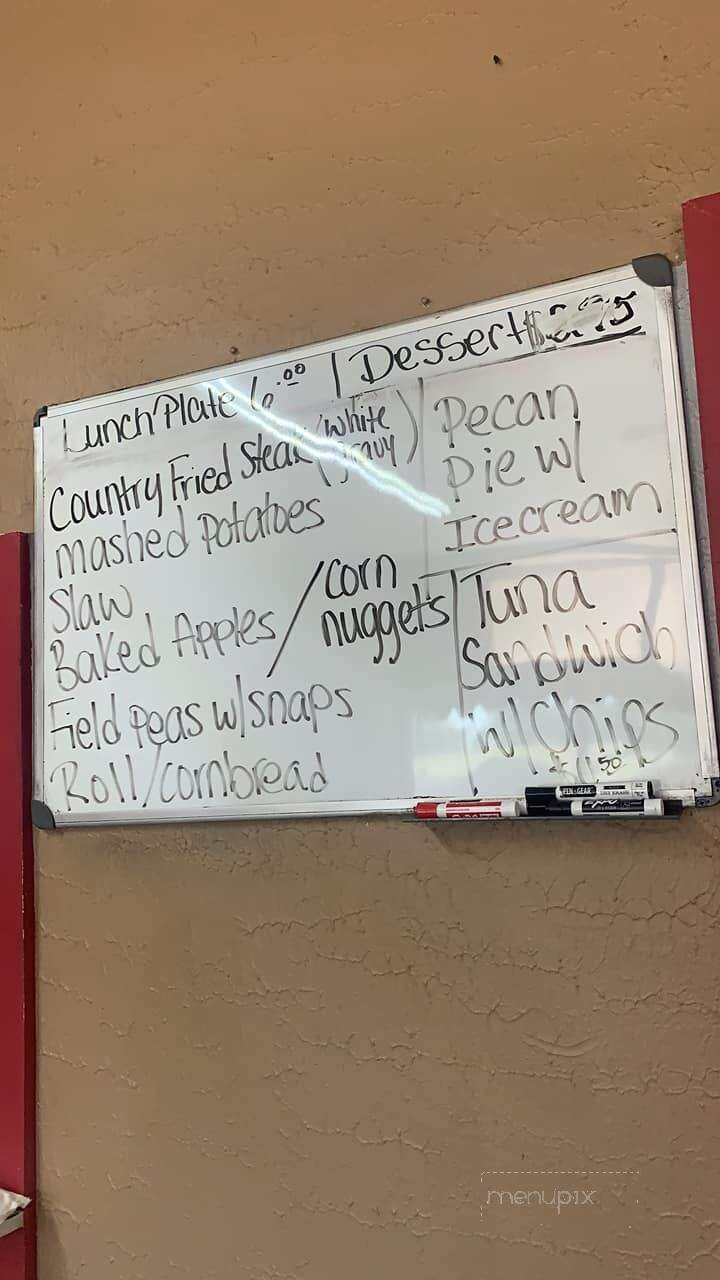 Lunch Plate 6.00 | Dessert
Country Fried Steak (White gravy)
mashed potatoes
Slaw
Baked Apples / corn nuggets
Field peas w/snaps
Roll/cornbread
Pecan
Pie w/
Icecream
Tuna
Sandwich
w/Chips
PEN+GEAR
menupix